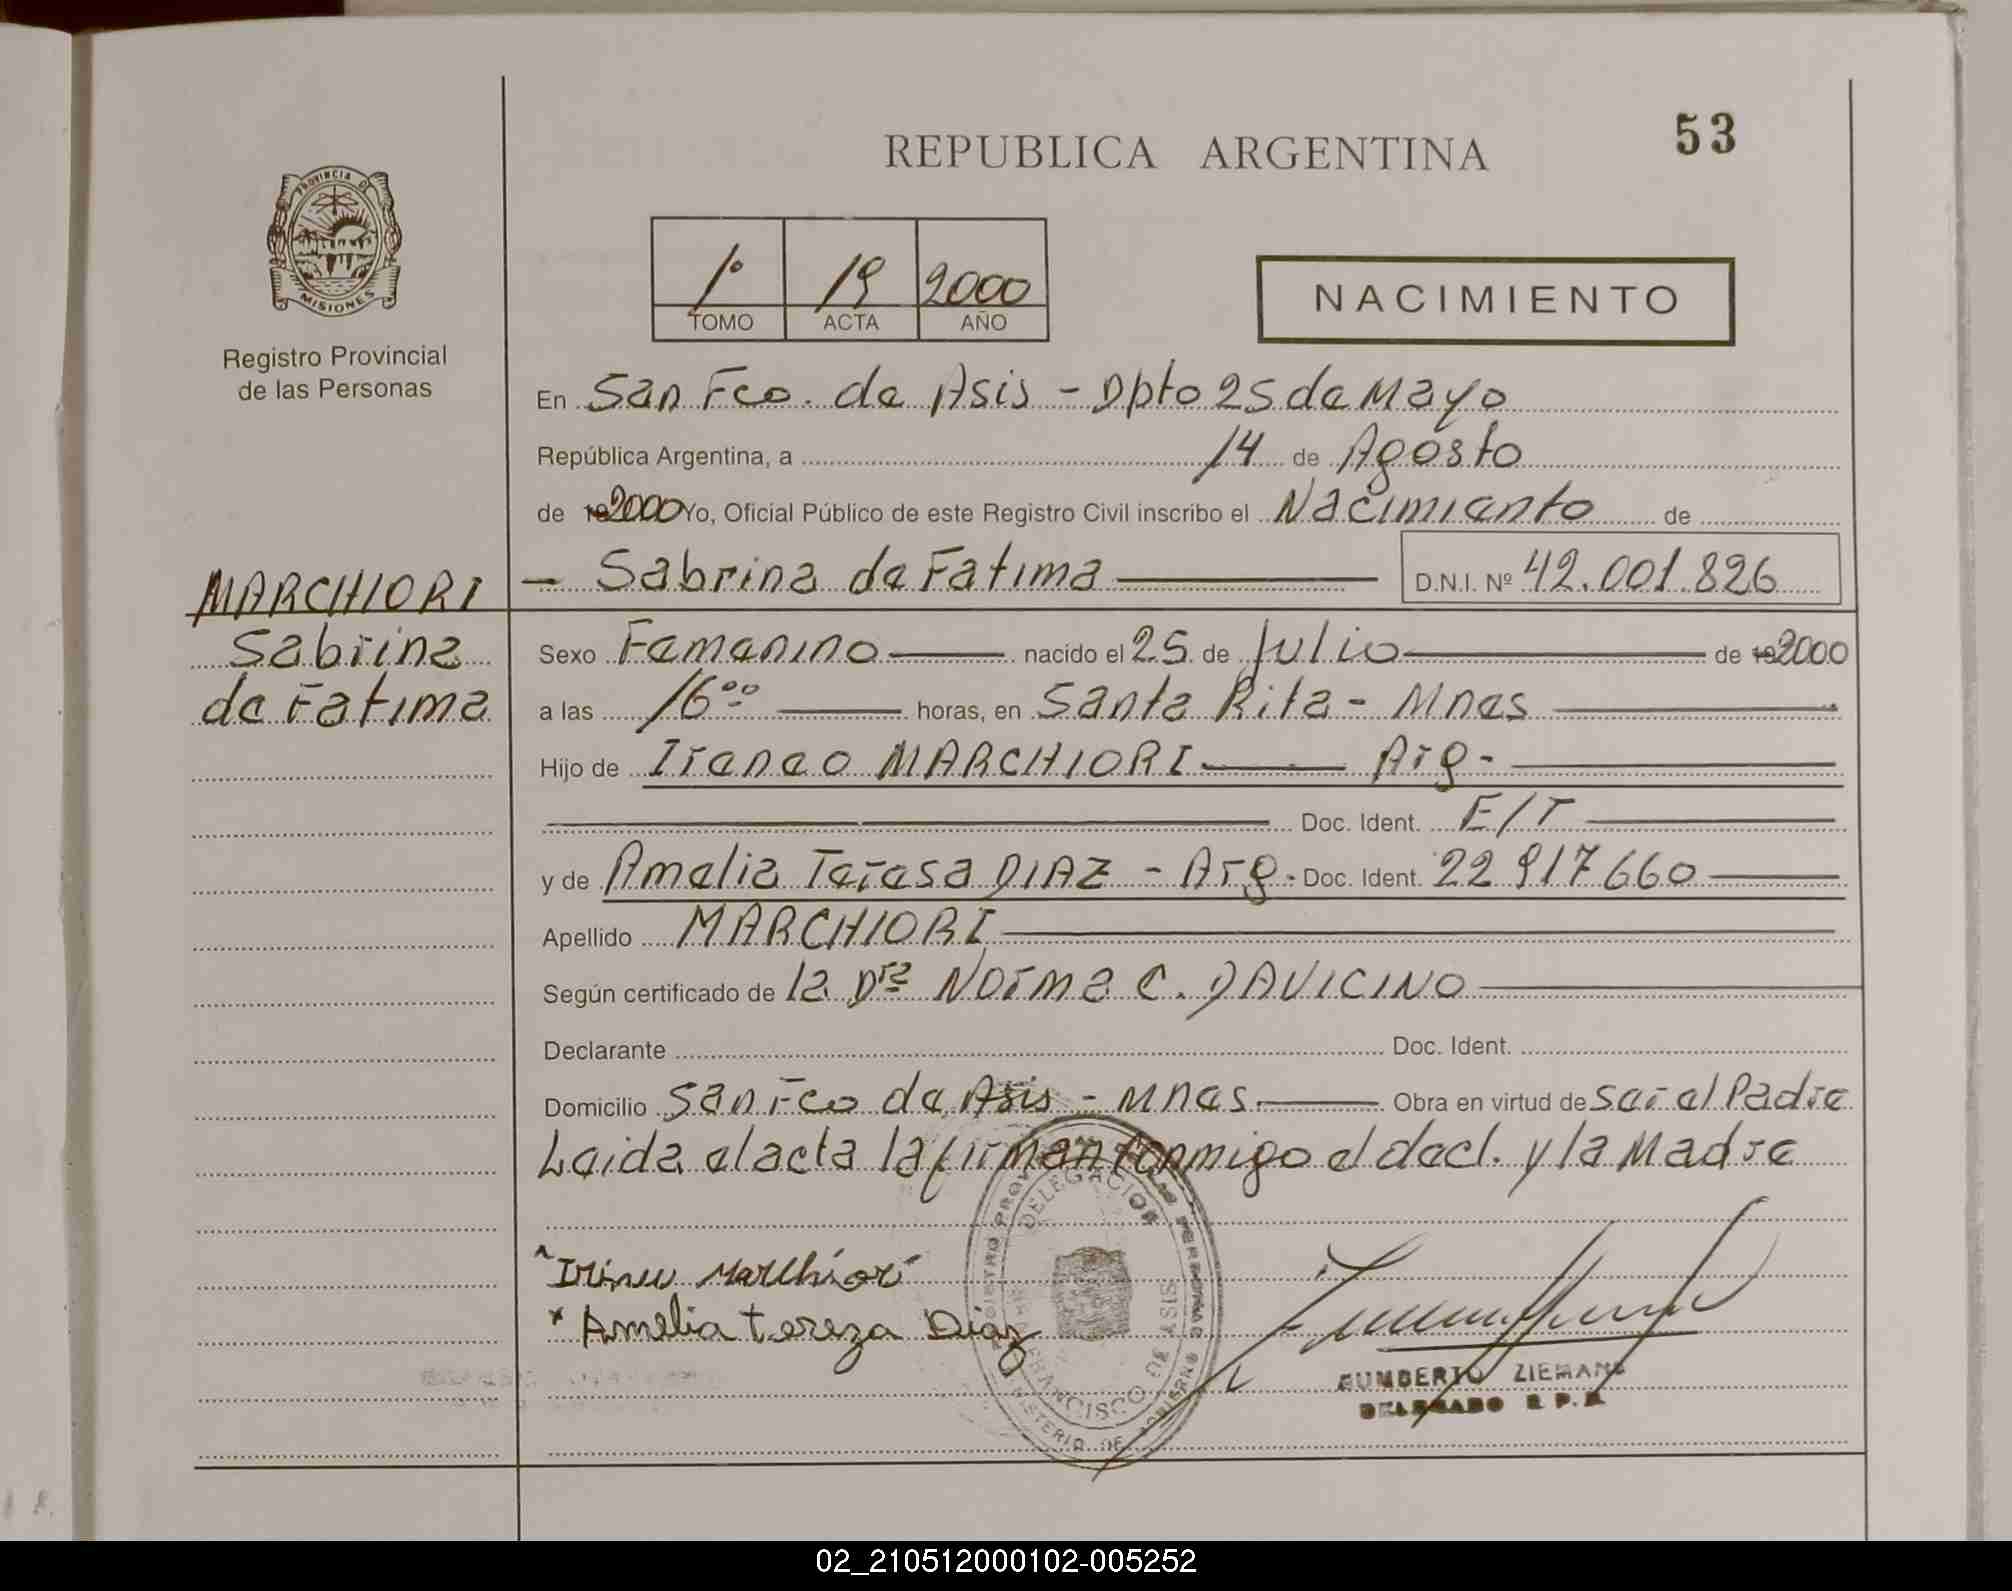 53
REPUBLICA ARGENTINA
PROVINCIA DE
MISIONES
Registro Provincial
de las Personas
1° 19 2000
TOMO ACTA AÑO
NACIMIENTO
En San Fco. de Asis - Dpto 25 de Mayo
República Argentina, a 14 de Agosto
de 2000 Yo, Oficial Público de este Registro Civil inscribo el Nacimiento de
MARCHIORI
Sabrina
de Fatima
- Sabrina de Fatima D.N.I. Nº 42.001.826
Sexo Femenino nacido el 25 de Julio de 2000
a las 16°° horas, en Santa Rita - Mnes
Hijo de Ireneo MARCHIORI Arg -
Doc. Ident. E/T
y de Amelia Teresa DIAZ - Arg - Doc. Ident. 22 917660
Apellido MARCHIORI
Según certificado de la Dra Norma C. DAVICINO
Declarante Doc. Ident.
Domicilio San Fco de Asis - Mnes Obra en virtud de ser el Padre
Leida el acta la firman conmigo el decl. y la Madre
Irineu Marchiori
x Amelia tereza Díaz
DELEGACION
FRANCISCO DE ASIS
HUMBERTO ZIEMANS
DELEGADO R P. P.
02_210512000102-005252